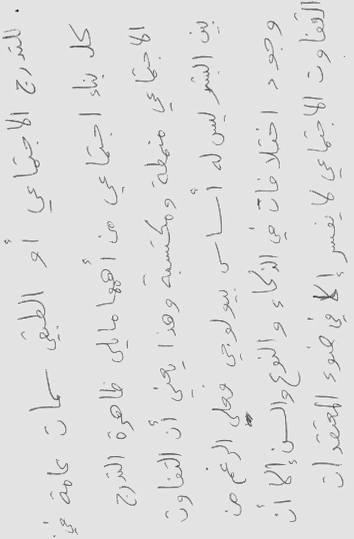 للتدرج الاجتماعي أو الطبقي سمات عامة في
كل بناء اجتماعي من أهمها مايلي ظاهرة التدرج
الاجتماعي منمطة ومكتسبة وهذا يعني أن التفاوت
بين البشر ليس له أساس بيولوجي فعلى الرغم من
وجود اختلافات في الذكاء والنوع والسن إلا أن
التفاوت الاجتماعي لا يفسر إلا في ضوء المعتقدات